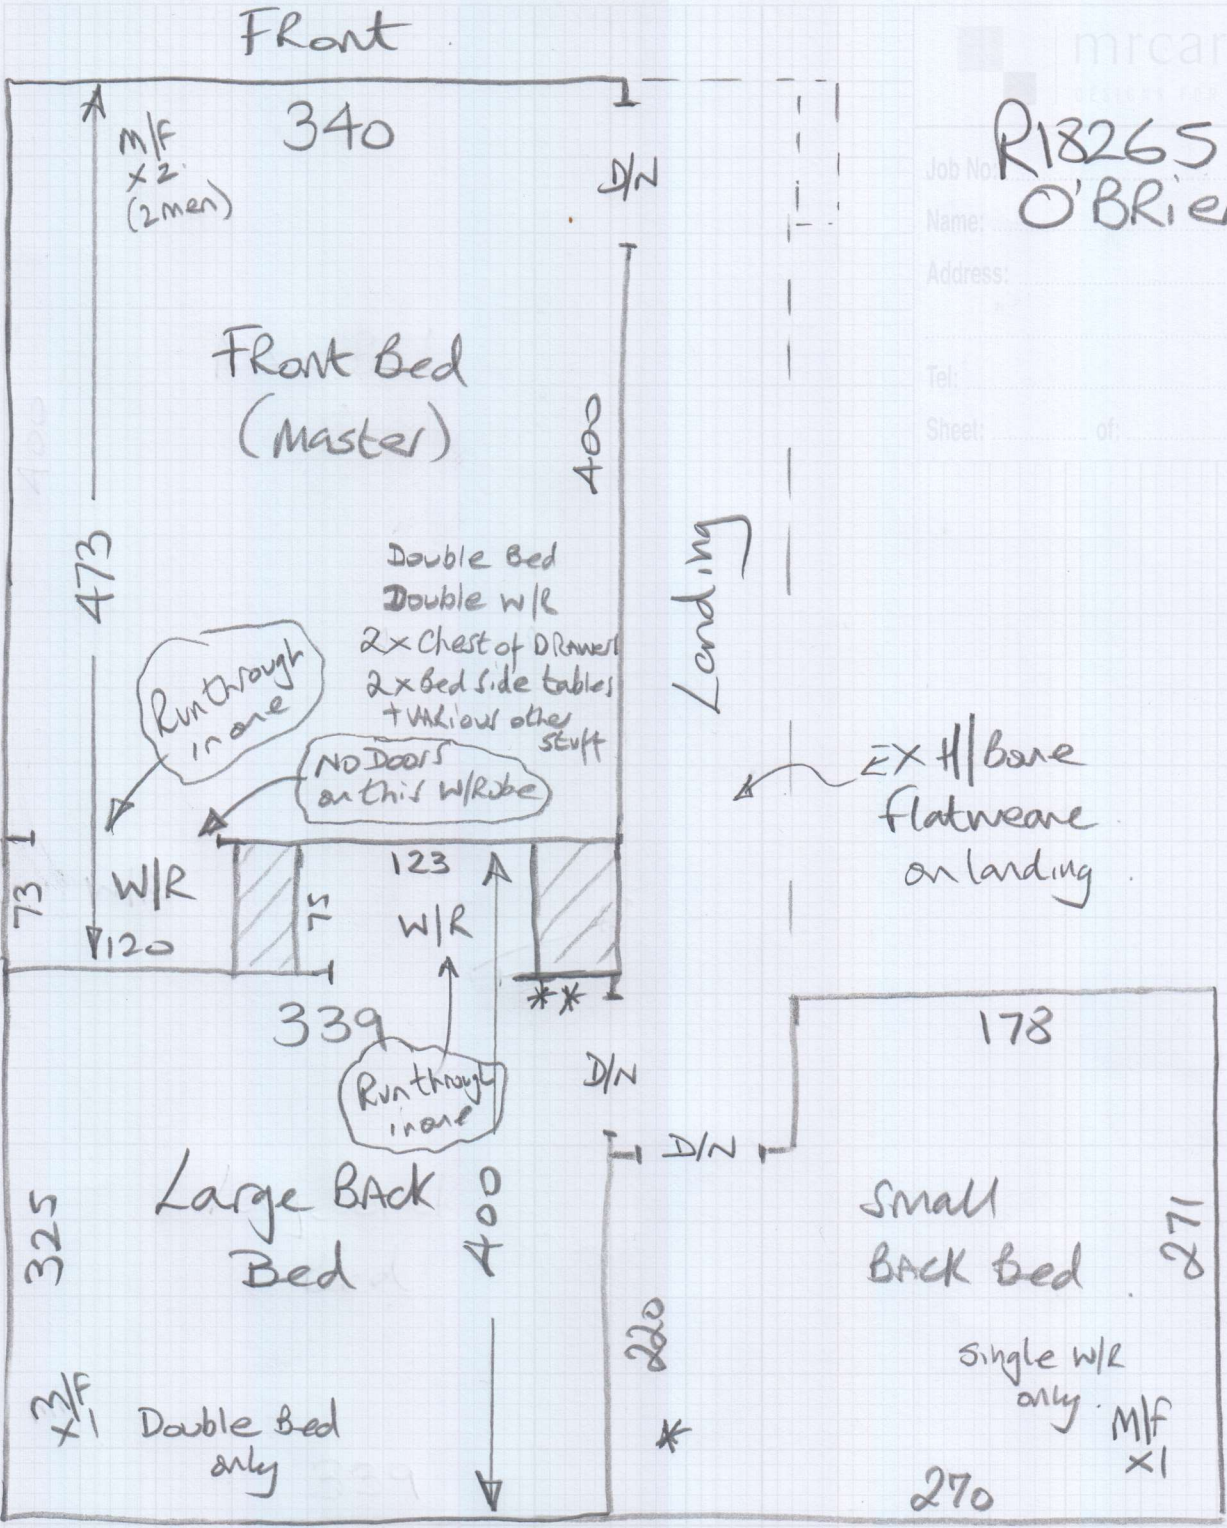 FRont
mrcar
R18265
O'BRie
Job No:
Name:
Address:
Tel:
Sheet: of:
340
M/F
x2
(2men)
D/N
FRont Bed
(Master)
400
473
Double Bed
Double W/R
2x Chest of DRAwers
2x Bed side tables
+ VARious other
stuff
Landing
Run through
in one
NO DOORS
on this W/Robe
EX H/Bone
flatweave
on landing
73
W/R
120
75
123
W/R
**
339
178
Run through
in one
D/N
D/N
Large BACK
Bed
400
325
Small
BACK Bed
271
220
Single W/R
only
M/F
x1
M/F
x1
Double Bed
only
*
270